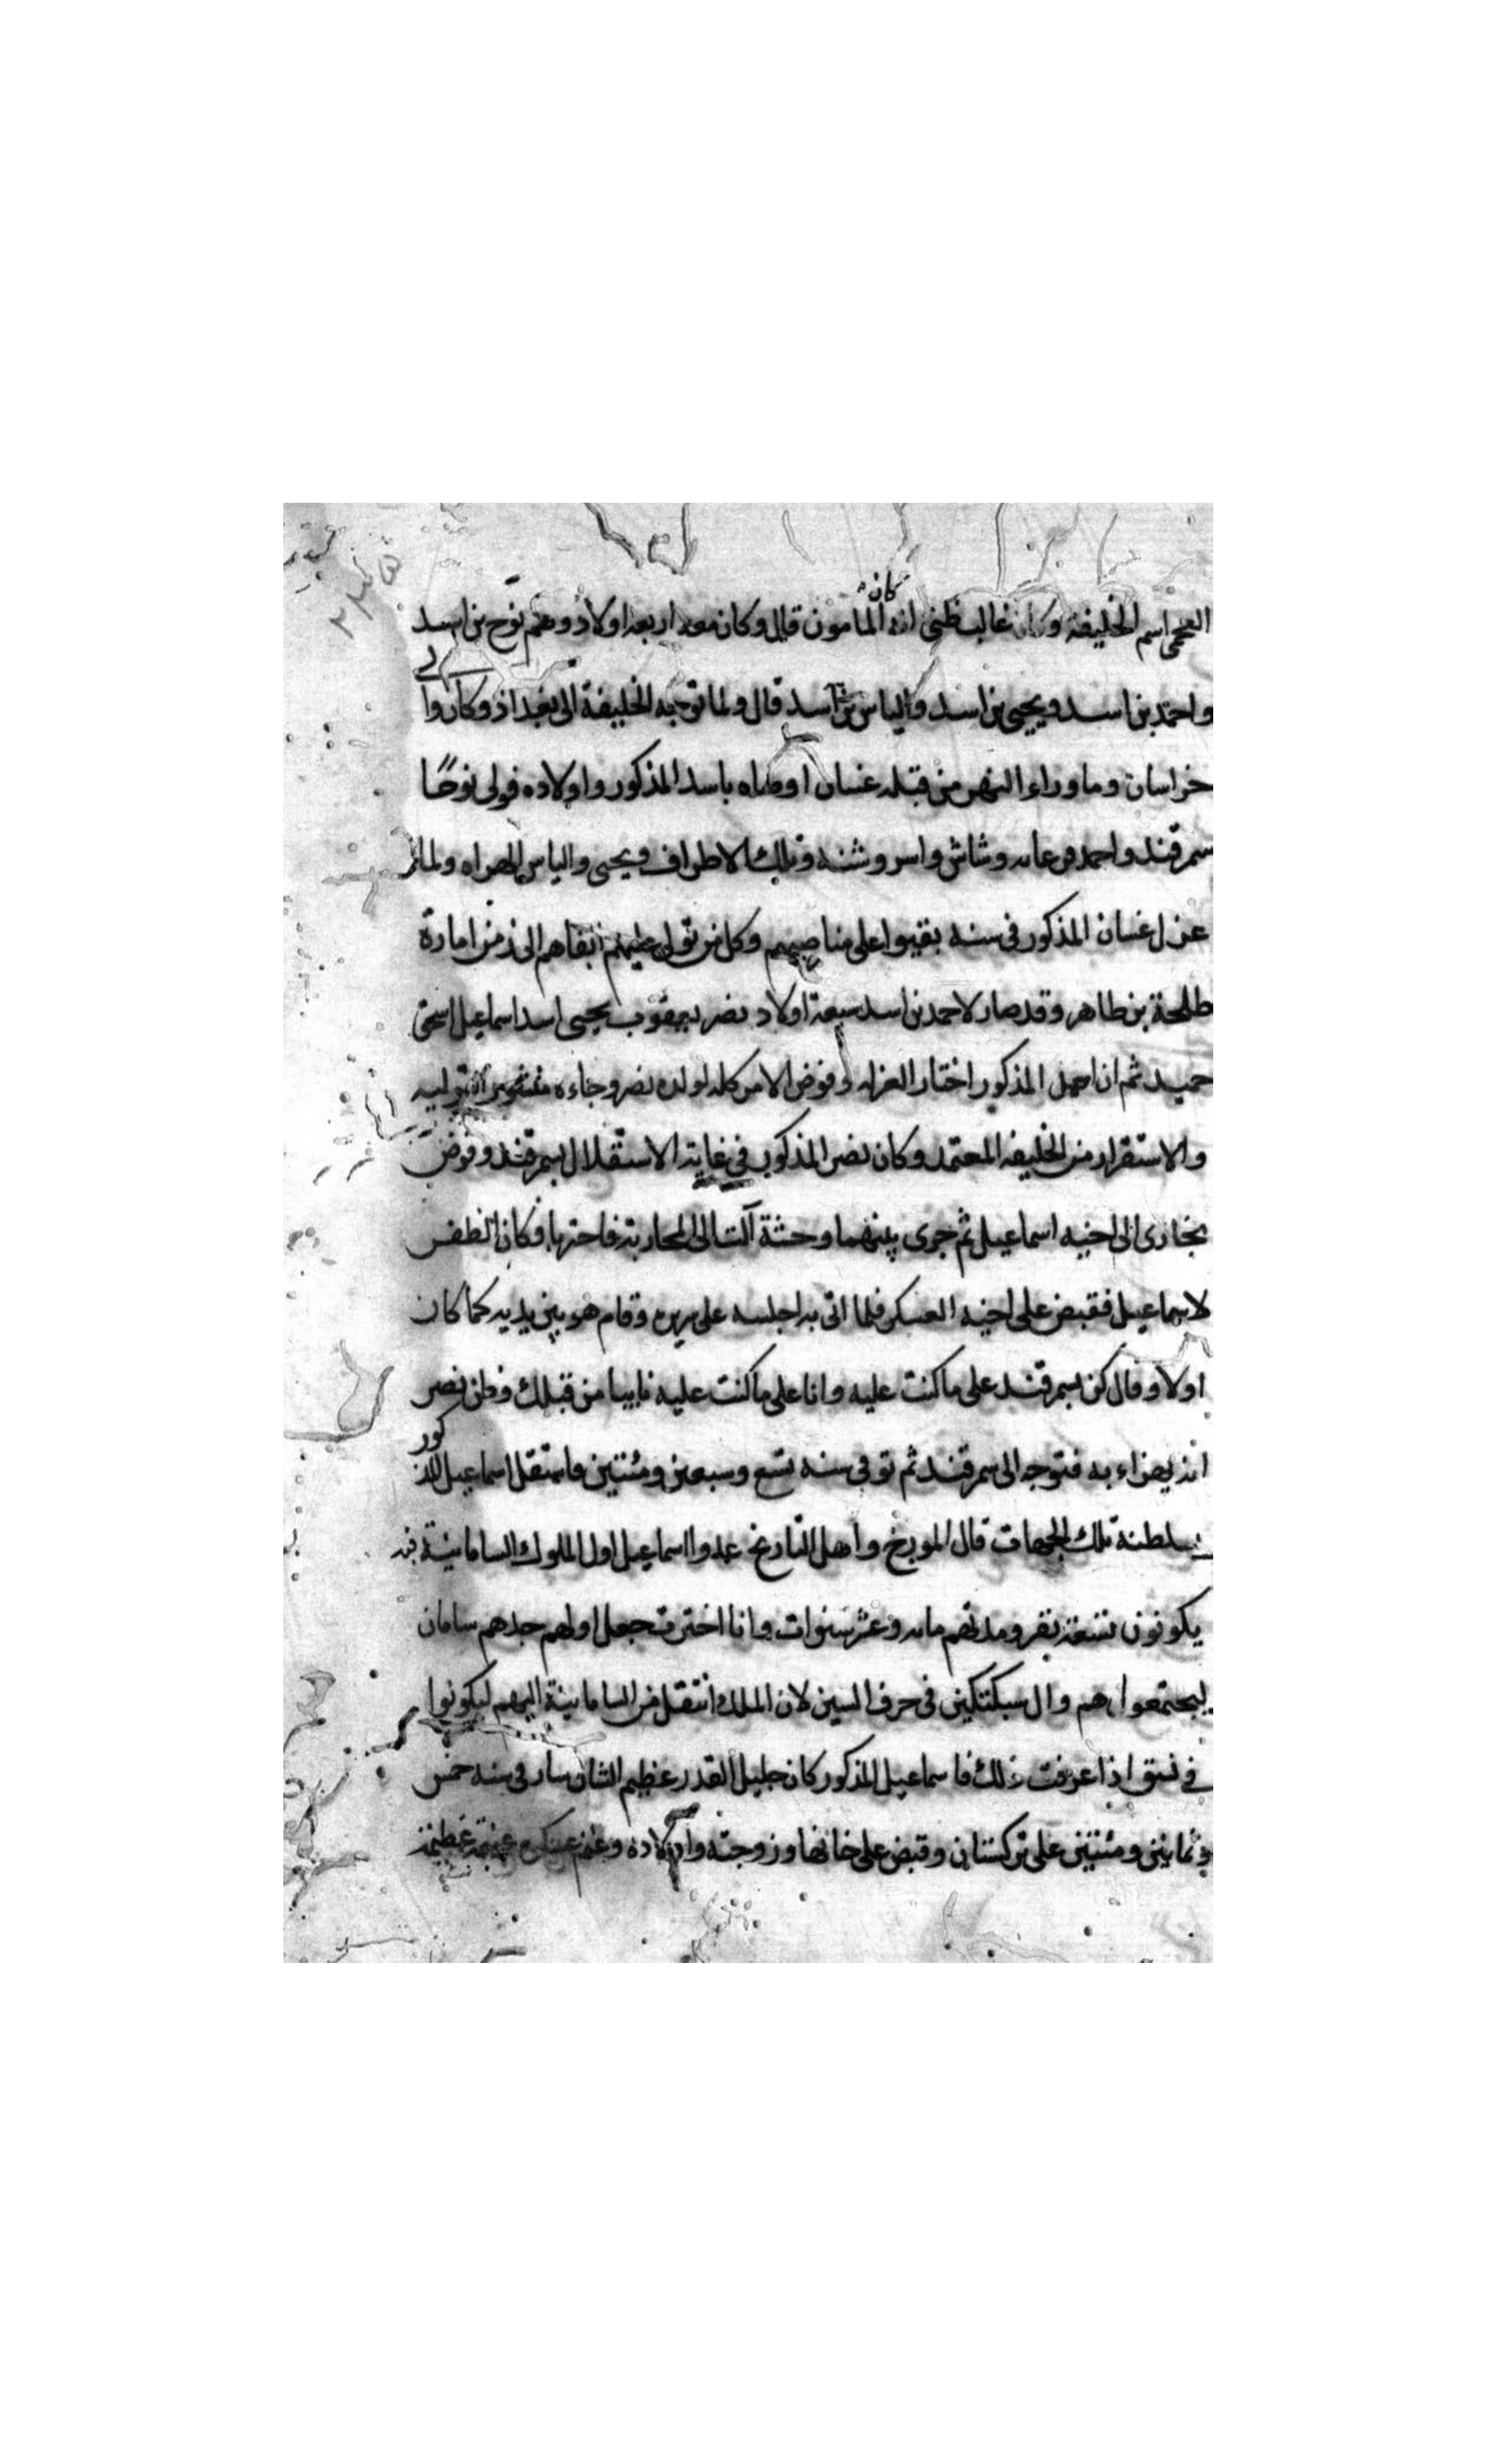 العجمي اسم الخليفة وكان غالب ظني انه كان المامون قال وكان معه اربعة اولاد وهم نوح بن اسد
واحمد بن اسد ويحيى بن اسد والياس بن اسد قال ولما توجه الخليفة الى بغداذ وكان والي
خراسان وماوراء النهر من قبله غسان اوصاه باسد المذكور واولاده فولى نوحًا
سمرقند واحمد فرعانه وشاش واسروشنه وتلك الاطراف ويحيى والياس الهراه ولما
عزل غسان المذكور في سنه بقيوا على مناصبهم وكل من تولى عليهم ابقاهم الى زمن امارة
طلحة بن طاهر وقد صار لاحمد بن اسد سبعة اولاد نصر يعقوب يحيى اسد اسماعيل اسحق
حميد ثم ان احمد المذكور اختار العزله وفوض الامر كله لولده نصر وجاءه منشور التوليه
والاستقرار من الخليفه المعتمد وكان نصر المذكور في غاية الاستقلال بسمرقند وفوض
بخارى الى اخيه اسماعيل ثم جرى بينهما وحشة آلت الى المحاربة فاحتربا فكان الظفر
لاسماعيل فقبض على اخيه العسكر فلما اتى به اجلسه على سريره وقام هو بين يديه كما كان
اولا وقال كن بسمرقند على ما كنت عليه وانا على ما كنت عليه نايبا من قبلك وظن نصر
انه يهزاء به فتوجه الى سمرقند ثم توفي سنه تسع وسبعين ومئتين فاستقل اسماعيل المذكور
بسلطنة تلك الجهات قال المورخ واهل التاريخ عدوا اسماعيل اول الملوك السامانية
يكونون تسعة نفر ومدتهم مايه وعشر سنوات وانا اخترت جعل اولهم جدهم سامان
ليجتمعوا هم وال سبكتكين في حرف السين لان الملك انتقل من السامانية اليهم ليكونوا
في نسق اذا عرفت ذلك فاسماعيل المذكور كان جليل القدر عظيم الشان سار في سنه خمس
وثمانين ومئتين على تركستان وقبض على خانها وزوجته واولاده وغنم عسكره غنيمة عظيمة